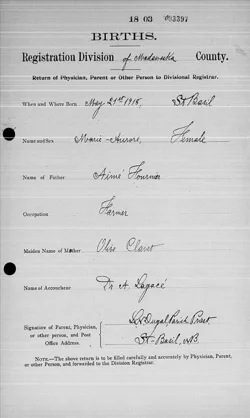 18 03 003397
BIRTHS.
Registration Division of Madawaska County.
Return of Physician, Parent or Other Person to Divisional Registrar.
When and Where Born May 21st 1918, St Basil
Name and Sex Marie-Aurore, Female
Name of Father Aimé Fournier
Occupation Farmer
Maiden Name of Mother
Name of Accoucheur Dr A. Lagacé
Signature of Parent, Physician,
or other person, and Post
Office Address.
Dugal Parish Priest
St-Basil, NB
NOTE.—The above return is to be filled carefully and accurately by Physician, Parent,
or other Person, and forwarded to the Division Registrar.